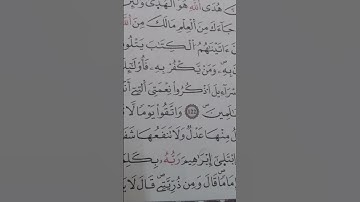 هُدَى ٱللَّهِ هُوَ ٱلْهُدَىٰ وَلَئِنِ
جَآءَكَ مِنَ ٱلْعِلْمِ مَالَكَ مِنَ ٱللَّهِ
ءَاتَيْنَٰهُمُ ٱلْكِتَٰبَ يَتْلُو
بِهِۦۗ وَمَن يَكْفُرْ بِهِۦ فَأُو۟لَٰٓئِ
سْرَٰٓءِيلَ ٱذْكُرُوا۟ نِعْمَتِىَ ٱلَّتِىٓ أَنْ
لَمِينَ ١٢٢ وَٱتَّقُوا۟ يَوْمًا لَّا
مِنْهَا عَدْلٌ وَلَا تَنفَعُهَا شَفَ
ٱبْتَلَىٰٓ إِبْرَٰهِـۧمَ رَبُّهُۥ بِكَلِمَ
مَامًا قَالَ وَمِن ذُرِّيَّتِى قَالَ لَا يَ